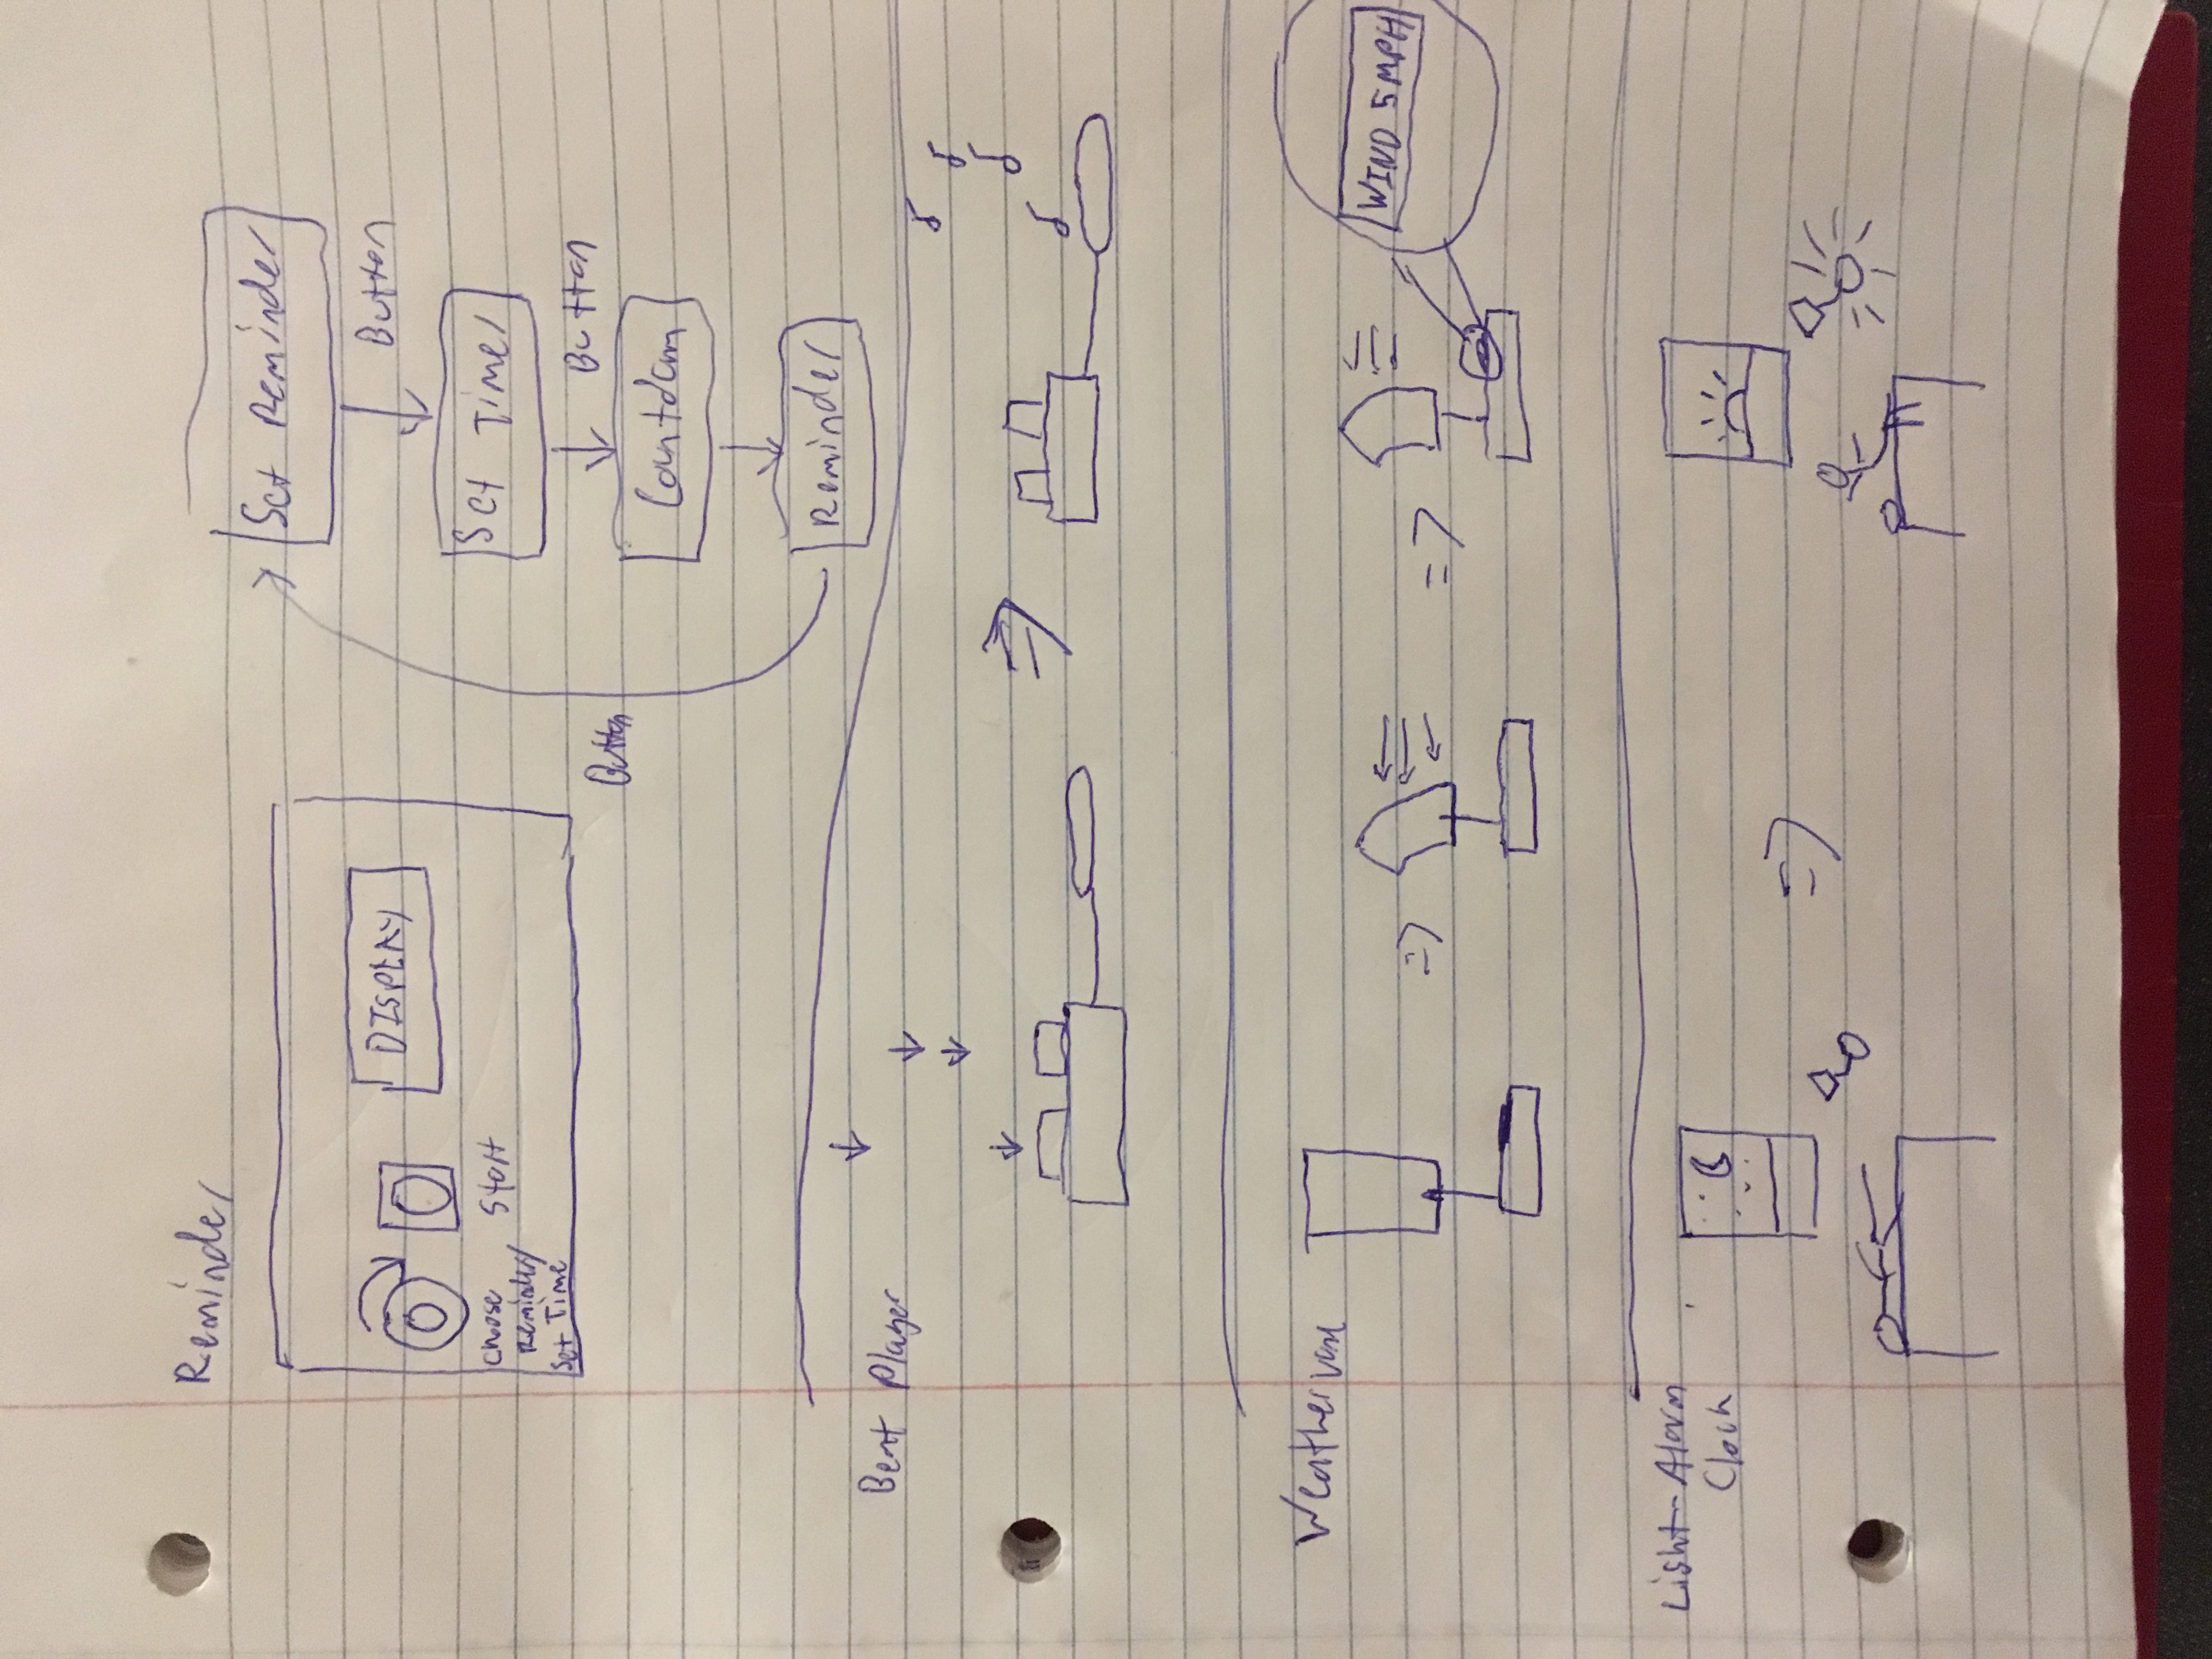 Reminder
DISPLAY
Choose
Reminder/
Set Time
Start
Set Reminder
Button
Set Timer
Button
Countdown
Button
Reminder
Beat Player
Weathervane
WIND 5MPH
Light-Alarm
Clock